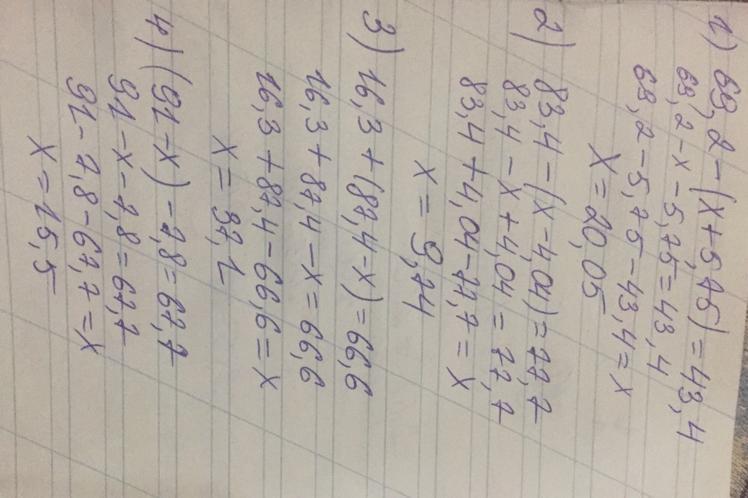 1) 69,2-(x+5,75)=43,4
69,2-x-5,75=43,4
69,2-5,75-43,4=x
x=20,05
2) 83,4-(x-4,04)=77,7
83,4-x+4,04=77,7
83,4+4,04-77,7=x
x=9,74
3) 16,3+(87,4-x)=66,6
16,3+87,4-x=66,6
16,3+87,4-66,6=x
x=37,1
4) (91-x)-7,8=67,7
91-x-7,8=67,7
91-7,8-67,7=x
x=15,5